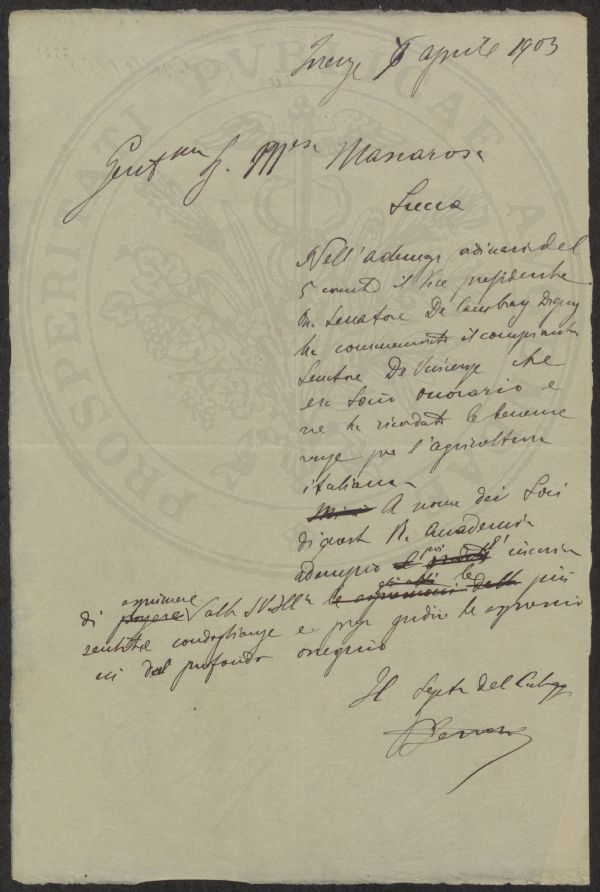 Firenze 6 aprile 1903
Gent.ma S. M.sa Mansarosa
Lucca
Nell'adunza ordinaria del
5 corrente il Vice presidente
On. Senatore De Cambray Digny
ha commemorato il compianto
Senatore De Vincenzi che
era Socio onorario e
ne ha ricordato le beneme
renze per l'agricoltura
italiana
A nome dei Soci
di questa R. Accademia
adempio poi l'incarico
di esprimere alla SV Ill.a le più
sentite condoglianze e prego gradire le espressio
ni del profondo ossequio
Il Segr
PROSPERITATI PUBLICAE